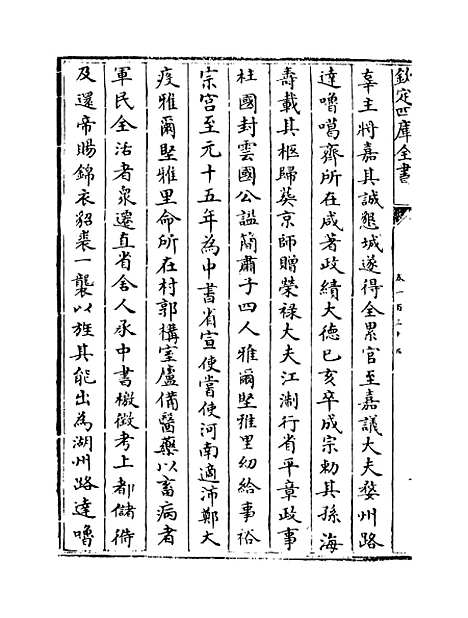 欽定四庫全書
卷一百三十九
辜主將嘉其誠懇城遂得全累官至嘉議大夫婺州路
達嚕噶齊所在咸著政績大德已亥卒成宗勅其孫海
壽載其柩歸葬京師贈榮祿大夫江淛行省平章政事
柱國封雲國公謚簡肅子四人雅爾堅雅里幼給事裕
宗宫至元十五年為中書省宣使嘗使河南適沛鄭大
疫雅爾堅雅里命所在村郭構室廬備醫藥以畜病者
軍民全活者衆遷直省舍人承中書檄徵考上都儲偫
及還帝賜錦衣貂裘一襲以旌其能出為湖州路達嚕